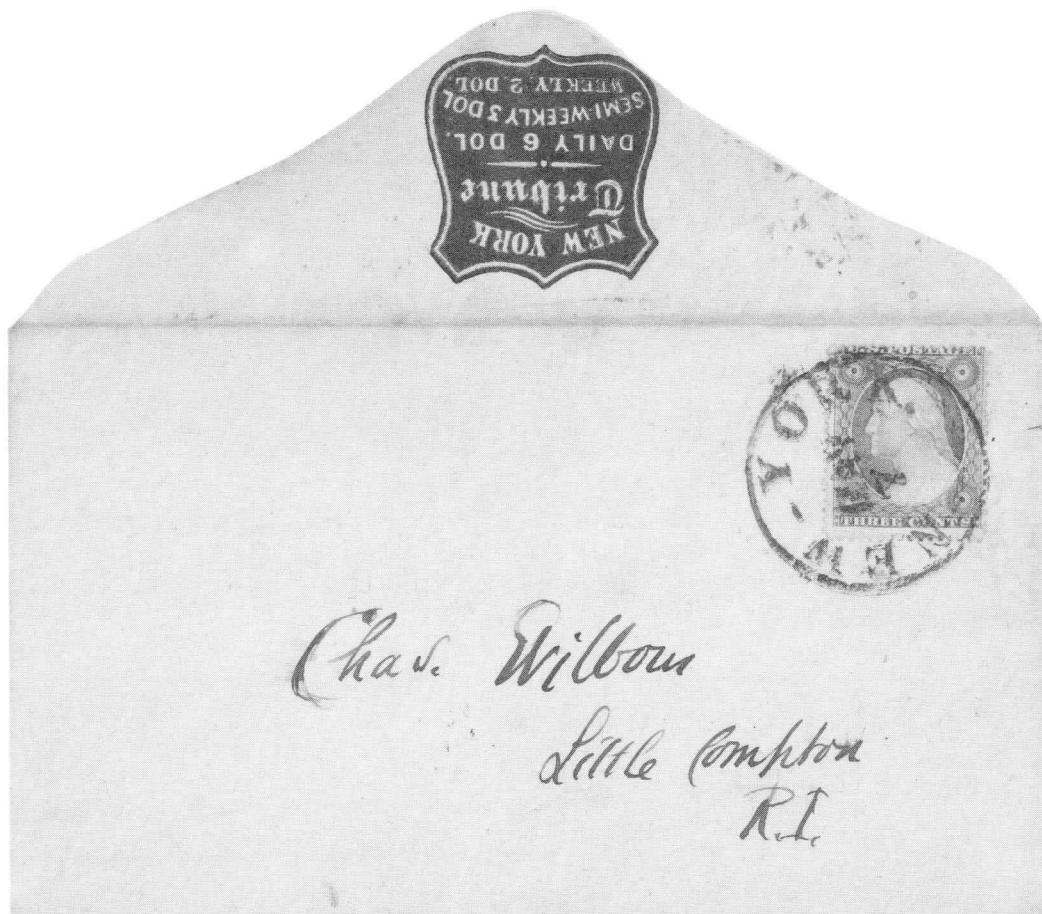 NEW YORK
Tribune
DAILY 6 DOL.
SEMI-WEEKLY 3 DOL
WEEKLY, 2 DOL.
NEW-YO
THREE CENTS
Chas. Wilbour
Little Compton
R.I.